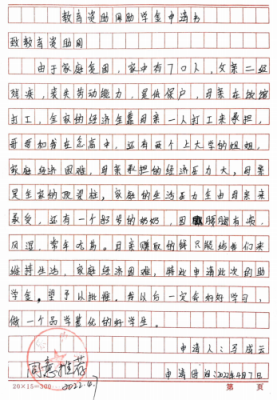 教育资助网助学金申请书
致教育资助网
由于家庭贫困，家中有7口人，父亲二级
残疾，丧失劳动能力，是低保户，母亲在
打工，全家的经济全靠母亲一人打工来承担，
哥哥和我在上高中，还有两个上大学的姐姐，
家庭经济困难，母亲承担的经济压力大，母亲
是全家的顶梁柱，家庭的生活压力全由母亲来
承受，还有一个 岁的奶奶，因腰腿有
风湿，常年吃药。母亲赚取的钱只够给我们来
维持生活，家庭经济困难，特此申请此次的助
学金，望予以批准，我以后一定会好好学习，
做一个品学兼优的好学生。
申请人：
申请时间：2022年4月7日
同意推荐
2022.4.7
20×15=300
第 页